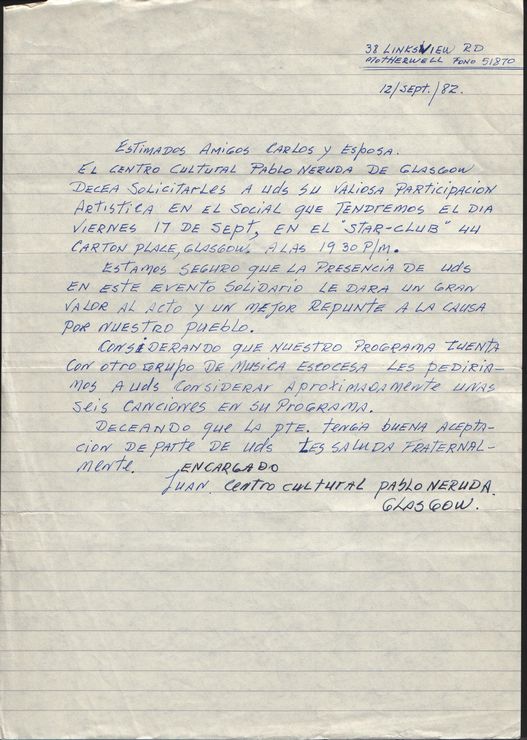 38 LINKSVIEW RD
MOTHERWELL FONO 51870
12/SEPT./82.
ESTIMADOS AMIGOS CARLOS Y ESPOSA.
EL CENTRO CULTURAL PABLO NERUDA DE GLASGOW
DECEA SOLICITARLES A UdS SU VALIOSA PARTICIPACION
ARTISTICA EN EL SOCIAL QUE TENDREMOS EL DIA
VIERNES 17 DE SEPT, EN EL "STAR-CLUB" 44
CARTON PLACE, GLASGOW. A LAS 19 30 P/M.
ESTAMOS SEGURO QUE LA PRESENCIA DE UdS
EN ESTE EVENTO SOLIDARIO LE DARA UN GRAN
VALOR AL ACTO Y UN MEJOR REPUNTE A LA CAUSA
POR NUESTRO PUEBLO.
CONSIDERANDO QUE NUESTRO PROGRAMA CUENTA
CON OTRO GRUPO DE MUSICA ESCOCESA LES PEDIRIA-
MOS A UdS CONSIDERAR APROXIMADAMENTE UNAS
SEIS CANCIONES EN SU PROGRAMA.
DECEANDO QUE LA PTE. TENGA BUENA ACEPTA-
CION DE PARTE DE UdS LES SALUDA FRATERNAL-
MENTE. ENCARGADO
JUAN. CENTRO CULTURAL PABLO NERUDA.
GLASGOW.